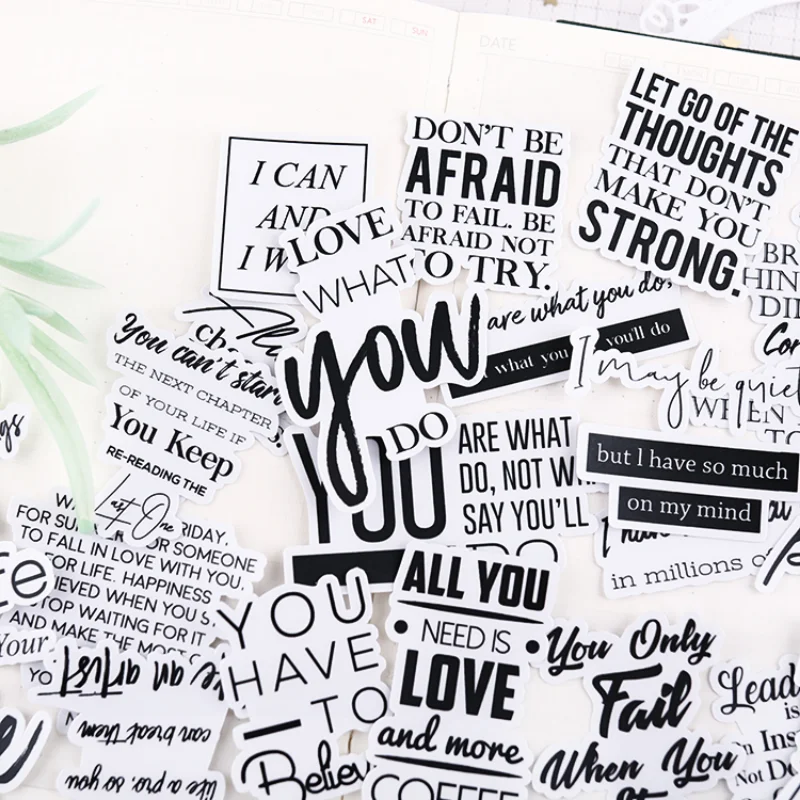 SAT
SUN
DATE
I CAN
AND
I W
DON'T BE
AFRAID
TO FAIL. BE
AFRAID NOT
TO TRY.
LET GO OF THE
THOUGHTS
THAT DON'T
MAKE YOU
STRONG.
LOVE
WHAT
you
DO
are what you do,
what you
you'll do
You can't start
THE NEXT CHAPTER
OF YOUR LIFE IF
You Keep
RE-READING THE
Last
One
I may be quiet
WHEN
TO
but I have so much
on my mind
YOU
ARE WHAT
DO, NOT W
SAY YOU'LL
DO
in millions of
RIDAY,
FOR SU
OR SOMEONE
TO FALL IN LOVE WITH YOU,
FOR LIFE. HAPPINESS
IEVED WHEN YOU S
TOP WAITING FOR IT
AND MAKE THE MOST
Your
like a pro, so you
can break them
like an artist
YOU
HAVE
TO
Believe
ALL YOU
NEED IS
LOVE
and more
COFFEE
You Only
Fail
When You
Lead
is
in Ins
Not Do